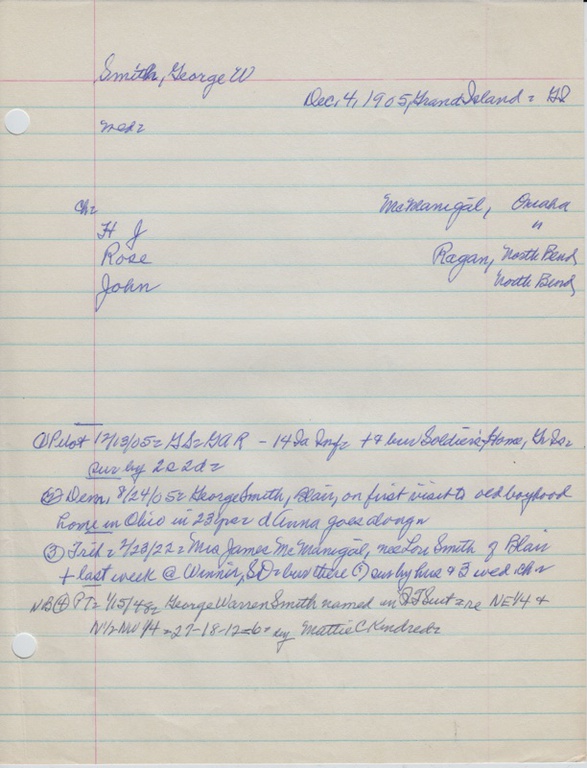 Smith, George W
Dec. 4, 1905, Grand Island =
med=
Ch=
McManigal, Omaha
H J "
Rose Ragan, North Bend
John North Bend
① Pilot 12/13/05= GS= GAR - 14 Ia Inf= + & bur Soldiers Home, Gr Is=
sur by 2s 2d=
② Dem, 8/24/05= George Smith, Blair, on first visit to old boyhood
home in Ohio in 23 yrs= d Anna goes along=
③ Trib= 2/23/22= Mrs James McManigal, nee Lou Smith of Blair
+ last week @ Winner, SD= bur there (?) sur by hus & 3 wed ch=
NB ④ PT= 1/15/48= George Warren Smith named in QT Suit= re NE 1/4 &
N 1/2 NW 1/4= 27-18-12= by Mattie C Kindred=